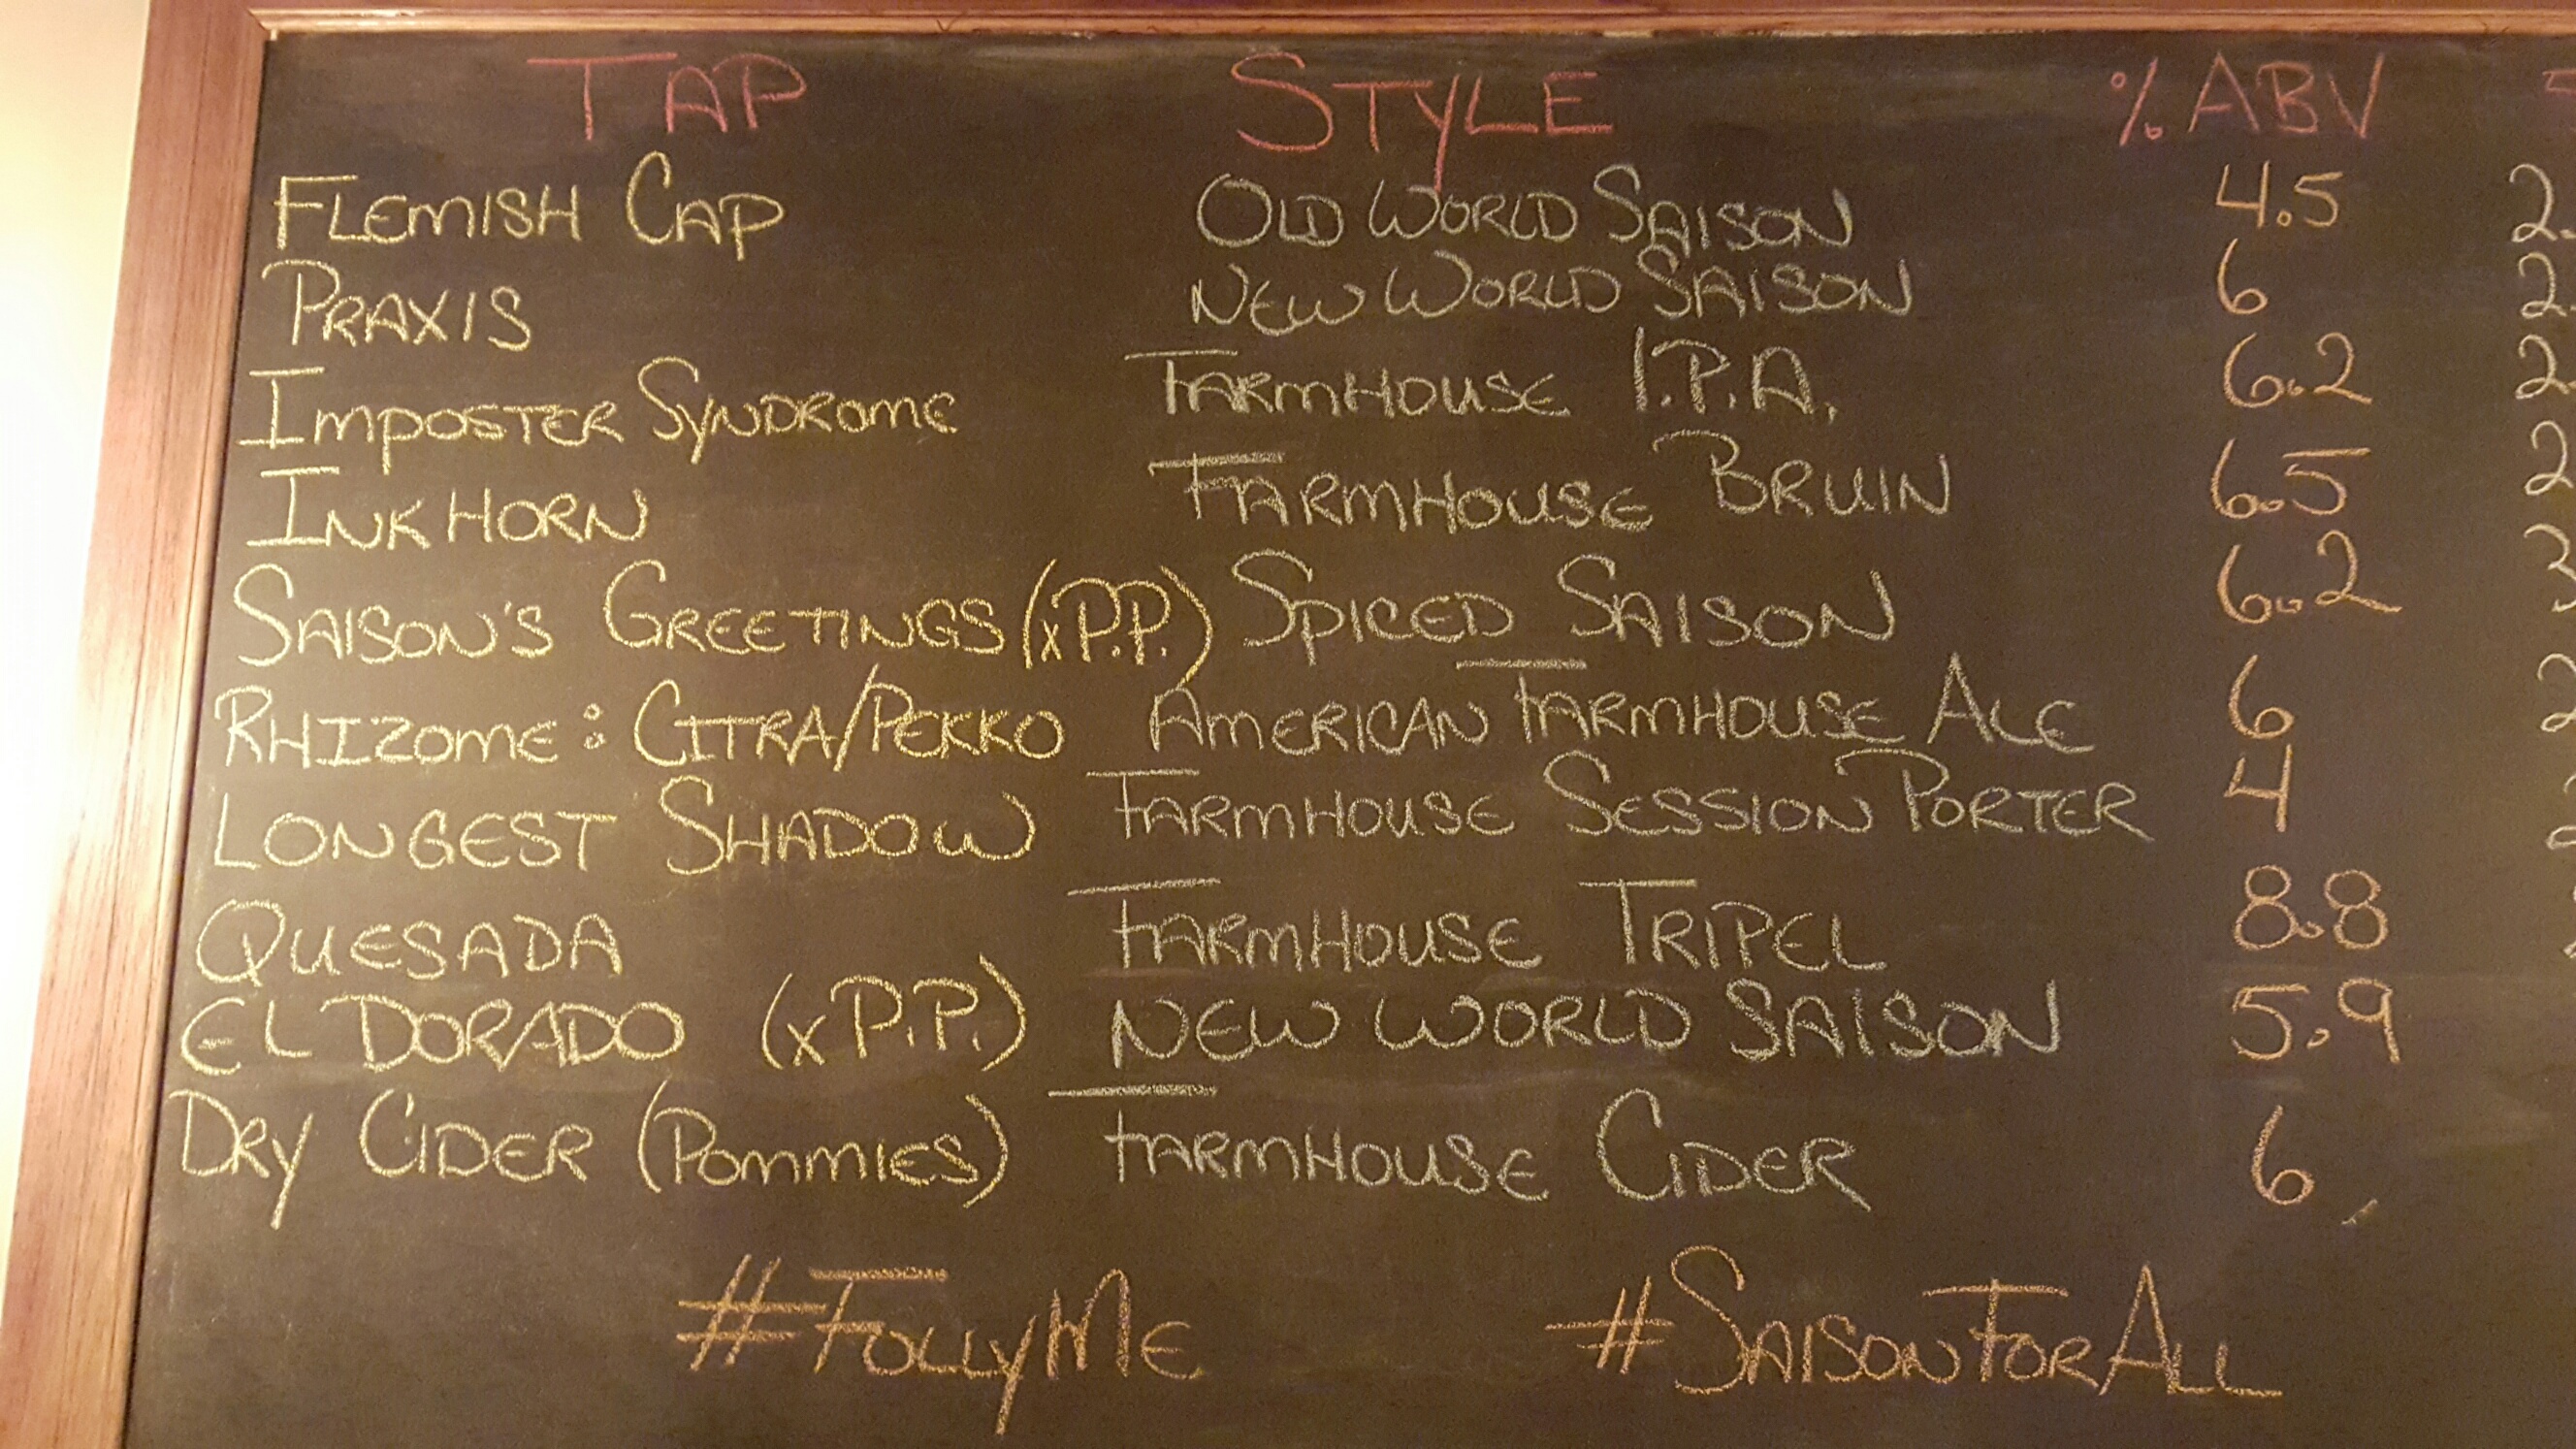 TAP STYLE % ABV
FLEMISH CAP OLD WORLD SAISON 4.5 2.
PRAXIS NEW WORLD SAISON 6 2.
IMPOSTER SYNDROME FARMHOUSE I.P.A. 6.2 2
INKHORN FARMHOUSE BRUIN 6.5 2
SAISON'S GREETINGS (x P.P.) SPICED SAISON 6.2 3
RHIZOME: CITRA/PEKKO AMERICAN FARMHOUSE ALE 6 2
LONGEST SHADOW FARMHOUSE SESSION PORTER 4
QUESADA FARMHOUSE TRIPEL 8.8
EL DORADO (x P.P.) NEW WORLD SAISON 5.9
DRY CIDER (POMMIES) FARMHOUSE CIDER 6
#FOLLYME #SAISONFORALL